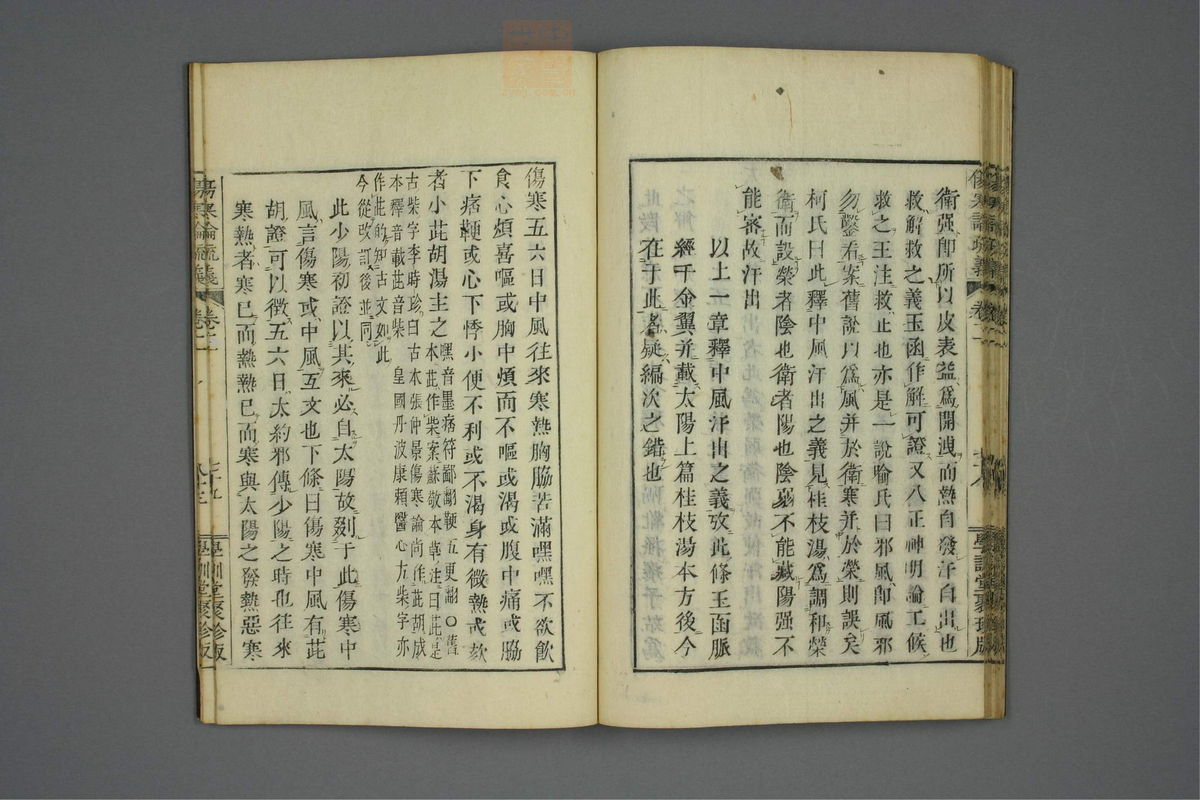 衛强即所以皮表益爲開洩而熱自發汗自出也
救解救之義玉函作解可證又八正神明論工候
救之王注救止也亦是一說喩氏曰邪風即風邪
勿鑿看案舊說以爲風并於衛寒并於榮則誤矣
柯氏曰此釋中風汗出之義見桂枝湯爲調和榮
衛而設榮者陰也衛者陽也陰弱不能藏陽强不
能密故汗出
以上一章釋中風汗出之義攷此條玉函脈
經千金翼并載太陽上篇桂枝湯本方後今
在于此者疑編次之錯也
傷寒五六日中風往來寒熱胸脇苦滿嘿嘿不欲飮
食心煩喜嘔或胸中煩而不嘔或渴或腹中痛或脇
下痞鞕或心下悸小便不利或不渴身有微熱或欬
者小茈胡湯主之
嘿音墨痞符鄙翻鞕五更翻○舊
本茈作柴案蘇敬本草注曰茈是
古柴字李時珍曰古本張仲景傷寒論尚作茈胡成
本釋音載茈音柴
皇國丹波康賴醫心方柴字亦
作茈的知古文如此
今從改訂後並同
此少陽初證以其來必自太陽故剟于此傷寒中
風言傷寒或中風互文也下條曰傷寒中風有茈
胡證可以徵五六日大約邪傳少陽之時也往來
寒熱者寒已而熱熱已而寒與太陽之發熱惡寒
傷寒論疏義
卷二
學訓堂聚珍版